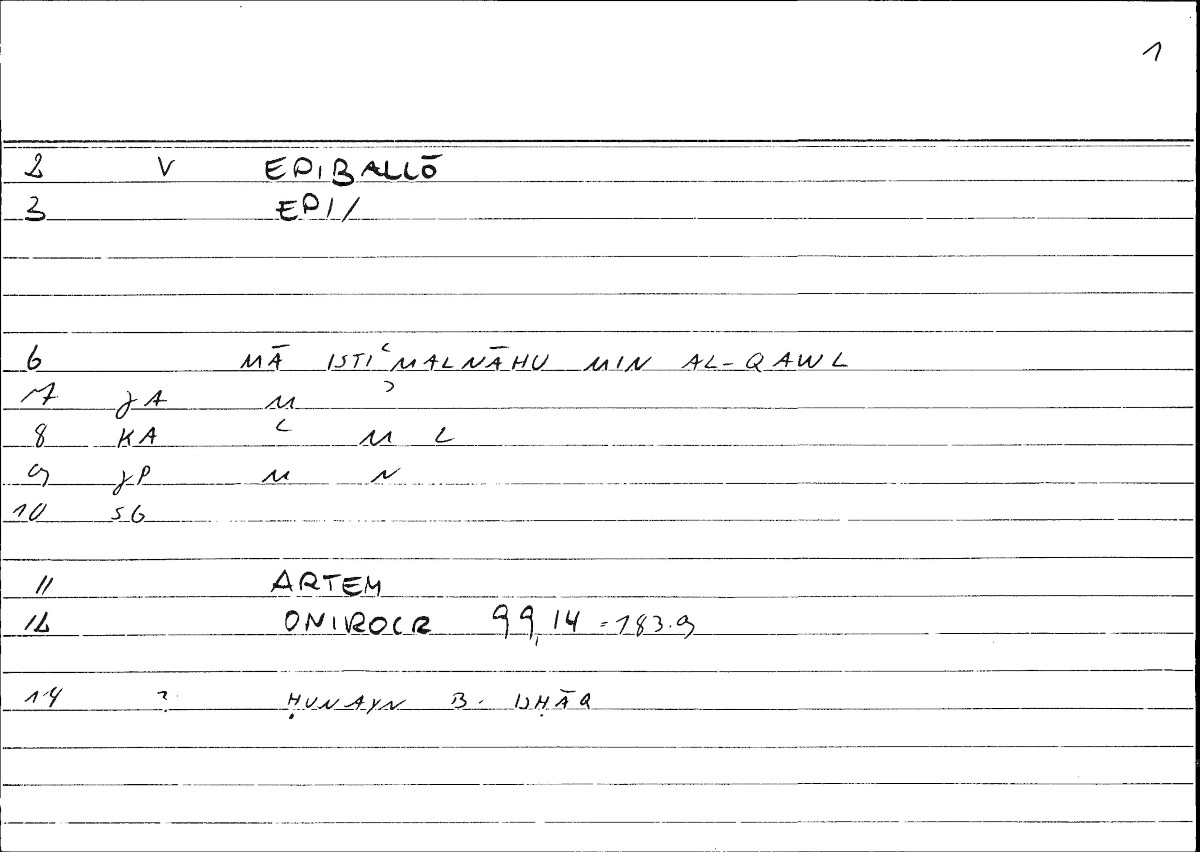 1
2 V EPIBALLŌ
3 EPI/
6 MĀ ISTIʿMALNĀHU MIN AL-QAWL
7 JA M ʾ
8 KA ʿ M L
9 JP M N
10 SG
11 ARTEM
12 ONIROCR 99,14 = 183.9
14 ? ḤUNAYN B. ISḤĀQ